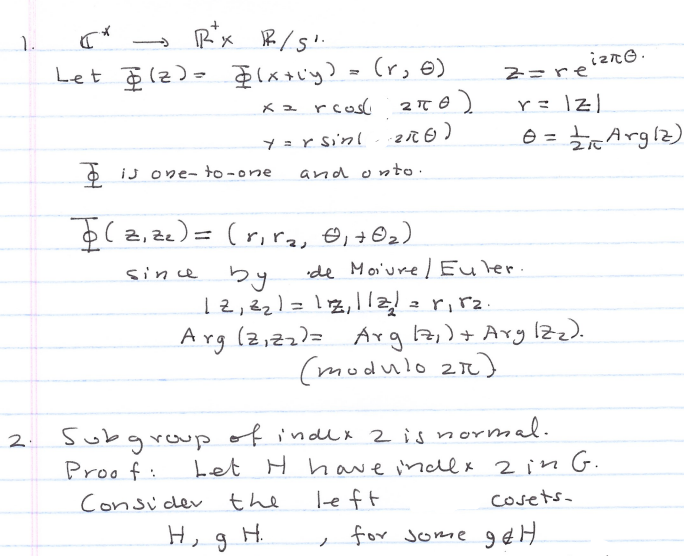 1. ℂ* → ℝ⁺ × ℝ/S¹.
Let Φ(z) = Φ(x+iy) = (r, θ) z = re^{i2πθ}.
x = r cos( 2πθ) r = |z|
y = r sin( 2πθ) θ = 1/2π Arg(z)
Φ is one-to-one and onto.
Φ(z₁z₂) = (r₁r₂, θ₁+θ₂)
since by de Moivre/Euler.
|z₁z₂| = |z₁||z₂| = r₁r₂.
Arg(z₁z₂) = Arg(z₁) + Arg(z₂).
(modulo 2π)
2. Subgroup of index 2 is normal.
Proof: Let H have index 2 in G.
Consider the left cosets-
H, gH. , for some g∉H